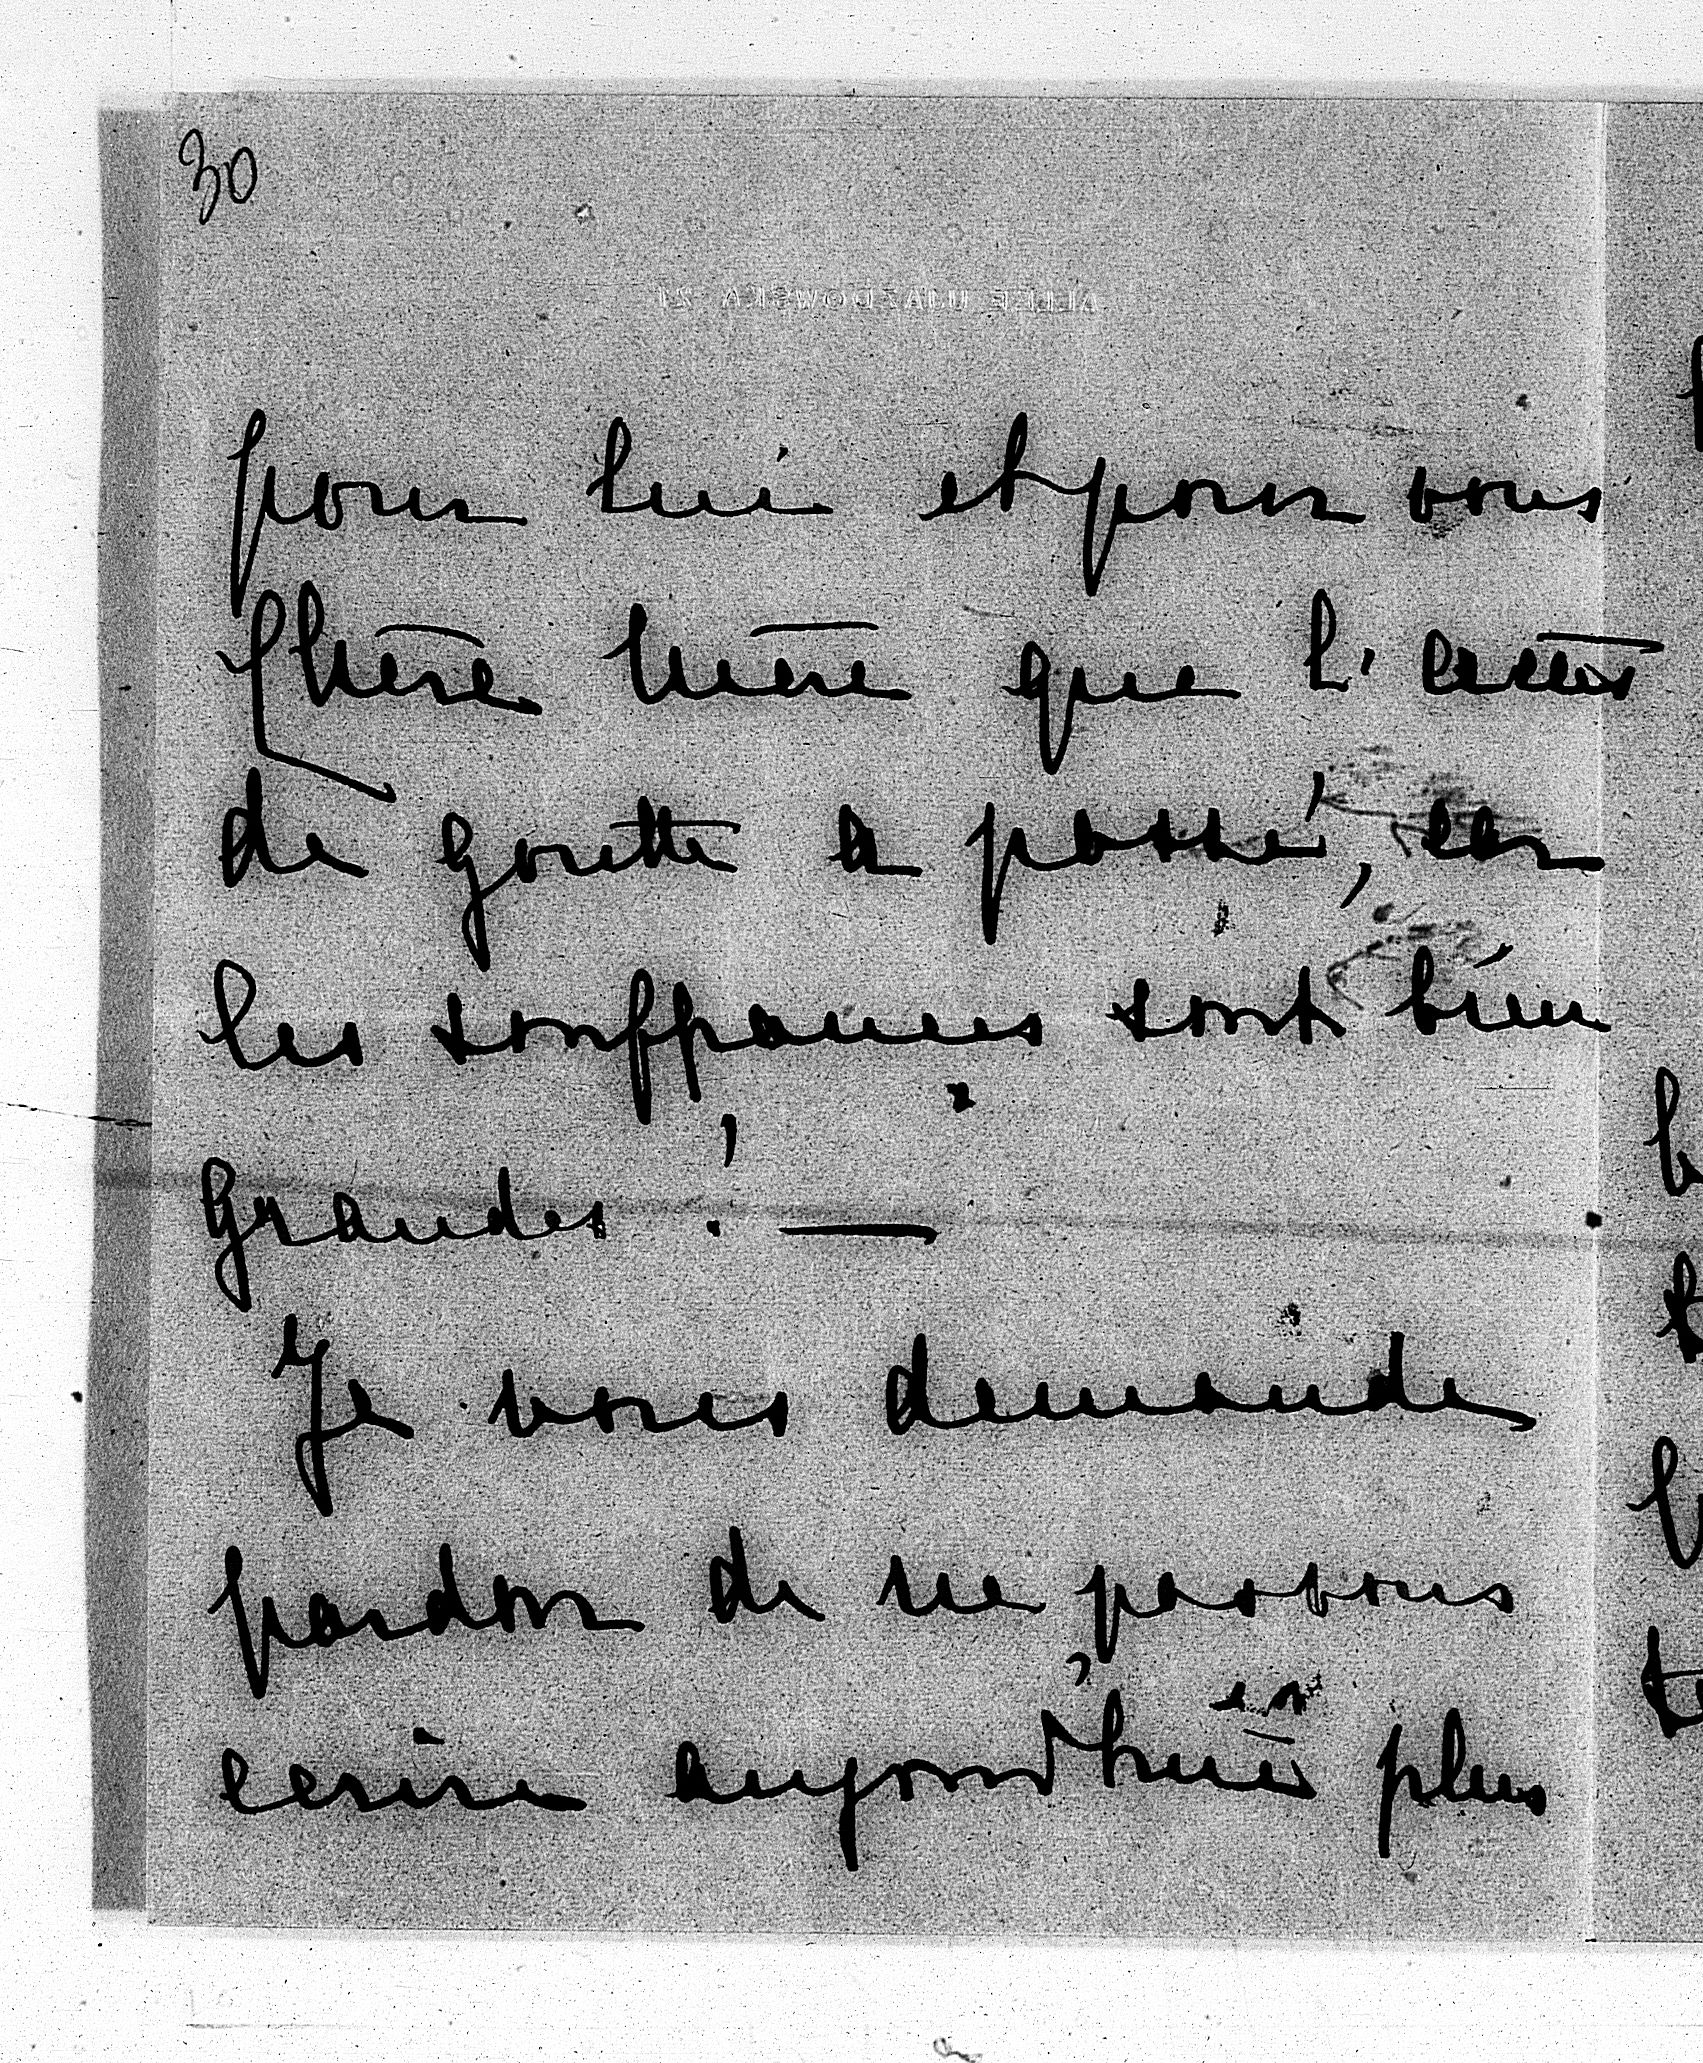 30
ALLÉE UJAZDOWSKA 21
pour lui et pour vous
Chère Mère que l'accès
de goutte a passé, car
les souffrances sont bien
grandes ! —
Je vous demande
pardon de ne pas vous
ecrire aujourd'hui plus